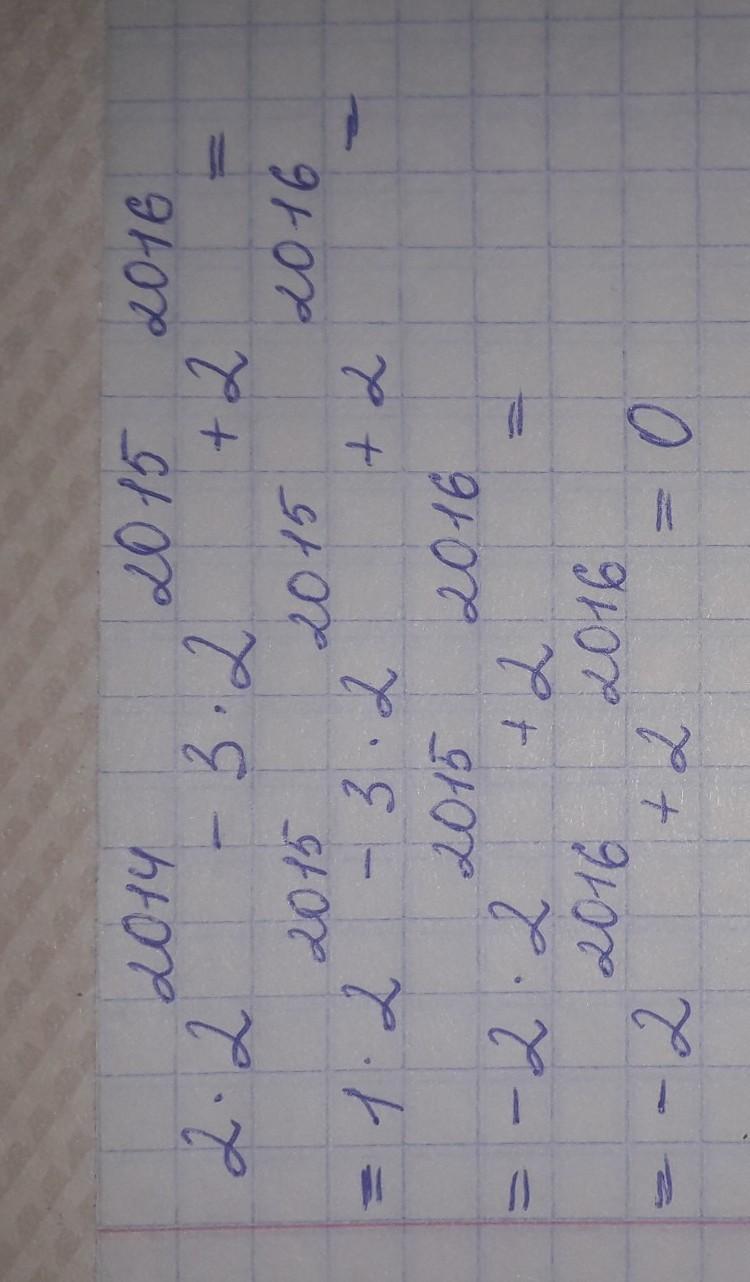 2·2²⁰¹⁴ - 3·2²⁰¹⁵ + 2²⁰¹⁶ =
= 1·2²⁰¹⁵ - 3·2²⁰¹⁵ + 2²⁰¹⁶ =
= -2·2²⁰¹⁵ + 2²⁰¹⁶ =
= -2²⁰¹⁶ + 2²⁰¹⁶ = 0